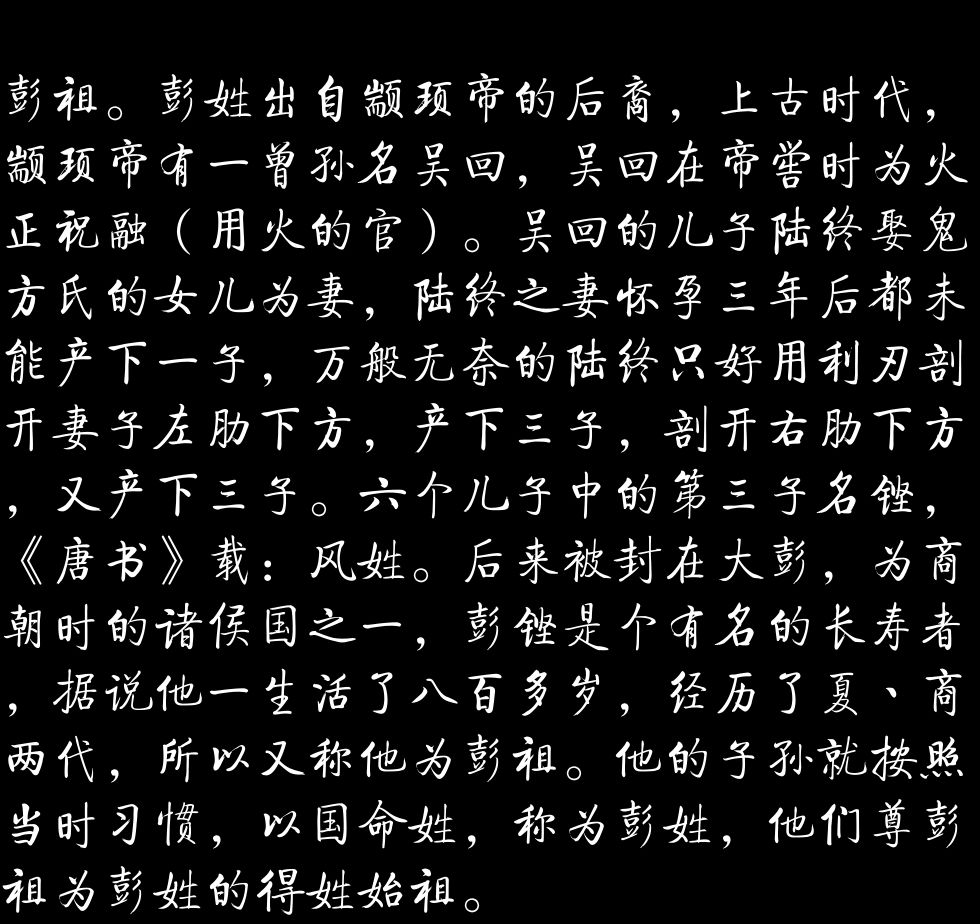 彭祖。彭姓出自颛顼帝的后裔，上古时代，
颛顼帝有一曾孙名吴回，吴回在帝喾时为火
正祝融（用火的官）。吴回的儿子陆终娶鬼
方氏的女儿为妻，陆终之妻怀孕三年后都未
能产下一子，万般无奈的陆终只好用利刃剖
开妻子左肋下方，产下三子，剖开右肋下方
，又产下三子。六个儿子中的第三子名铿，
《唐书》载：风姓。后来被封在大彭，为商
朝时的诸侯国之一，彭铿是个有名的长寿者
，据说他一生活了八百多岁，经历了夏、商
两代，所以又称他为彭祖。他的子孙就按照
当时习惯，以国命姓，称为彭姓，他们尊彭
祖为彭姓的得姓始祖。